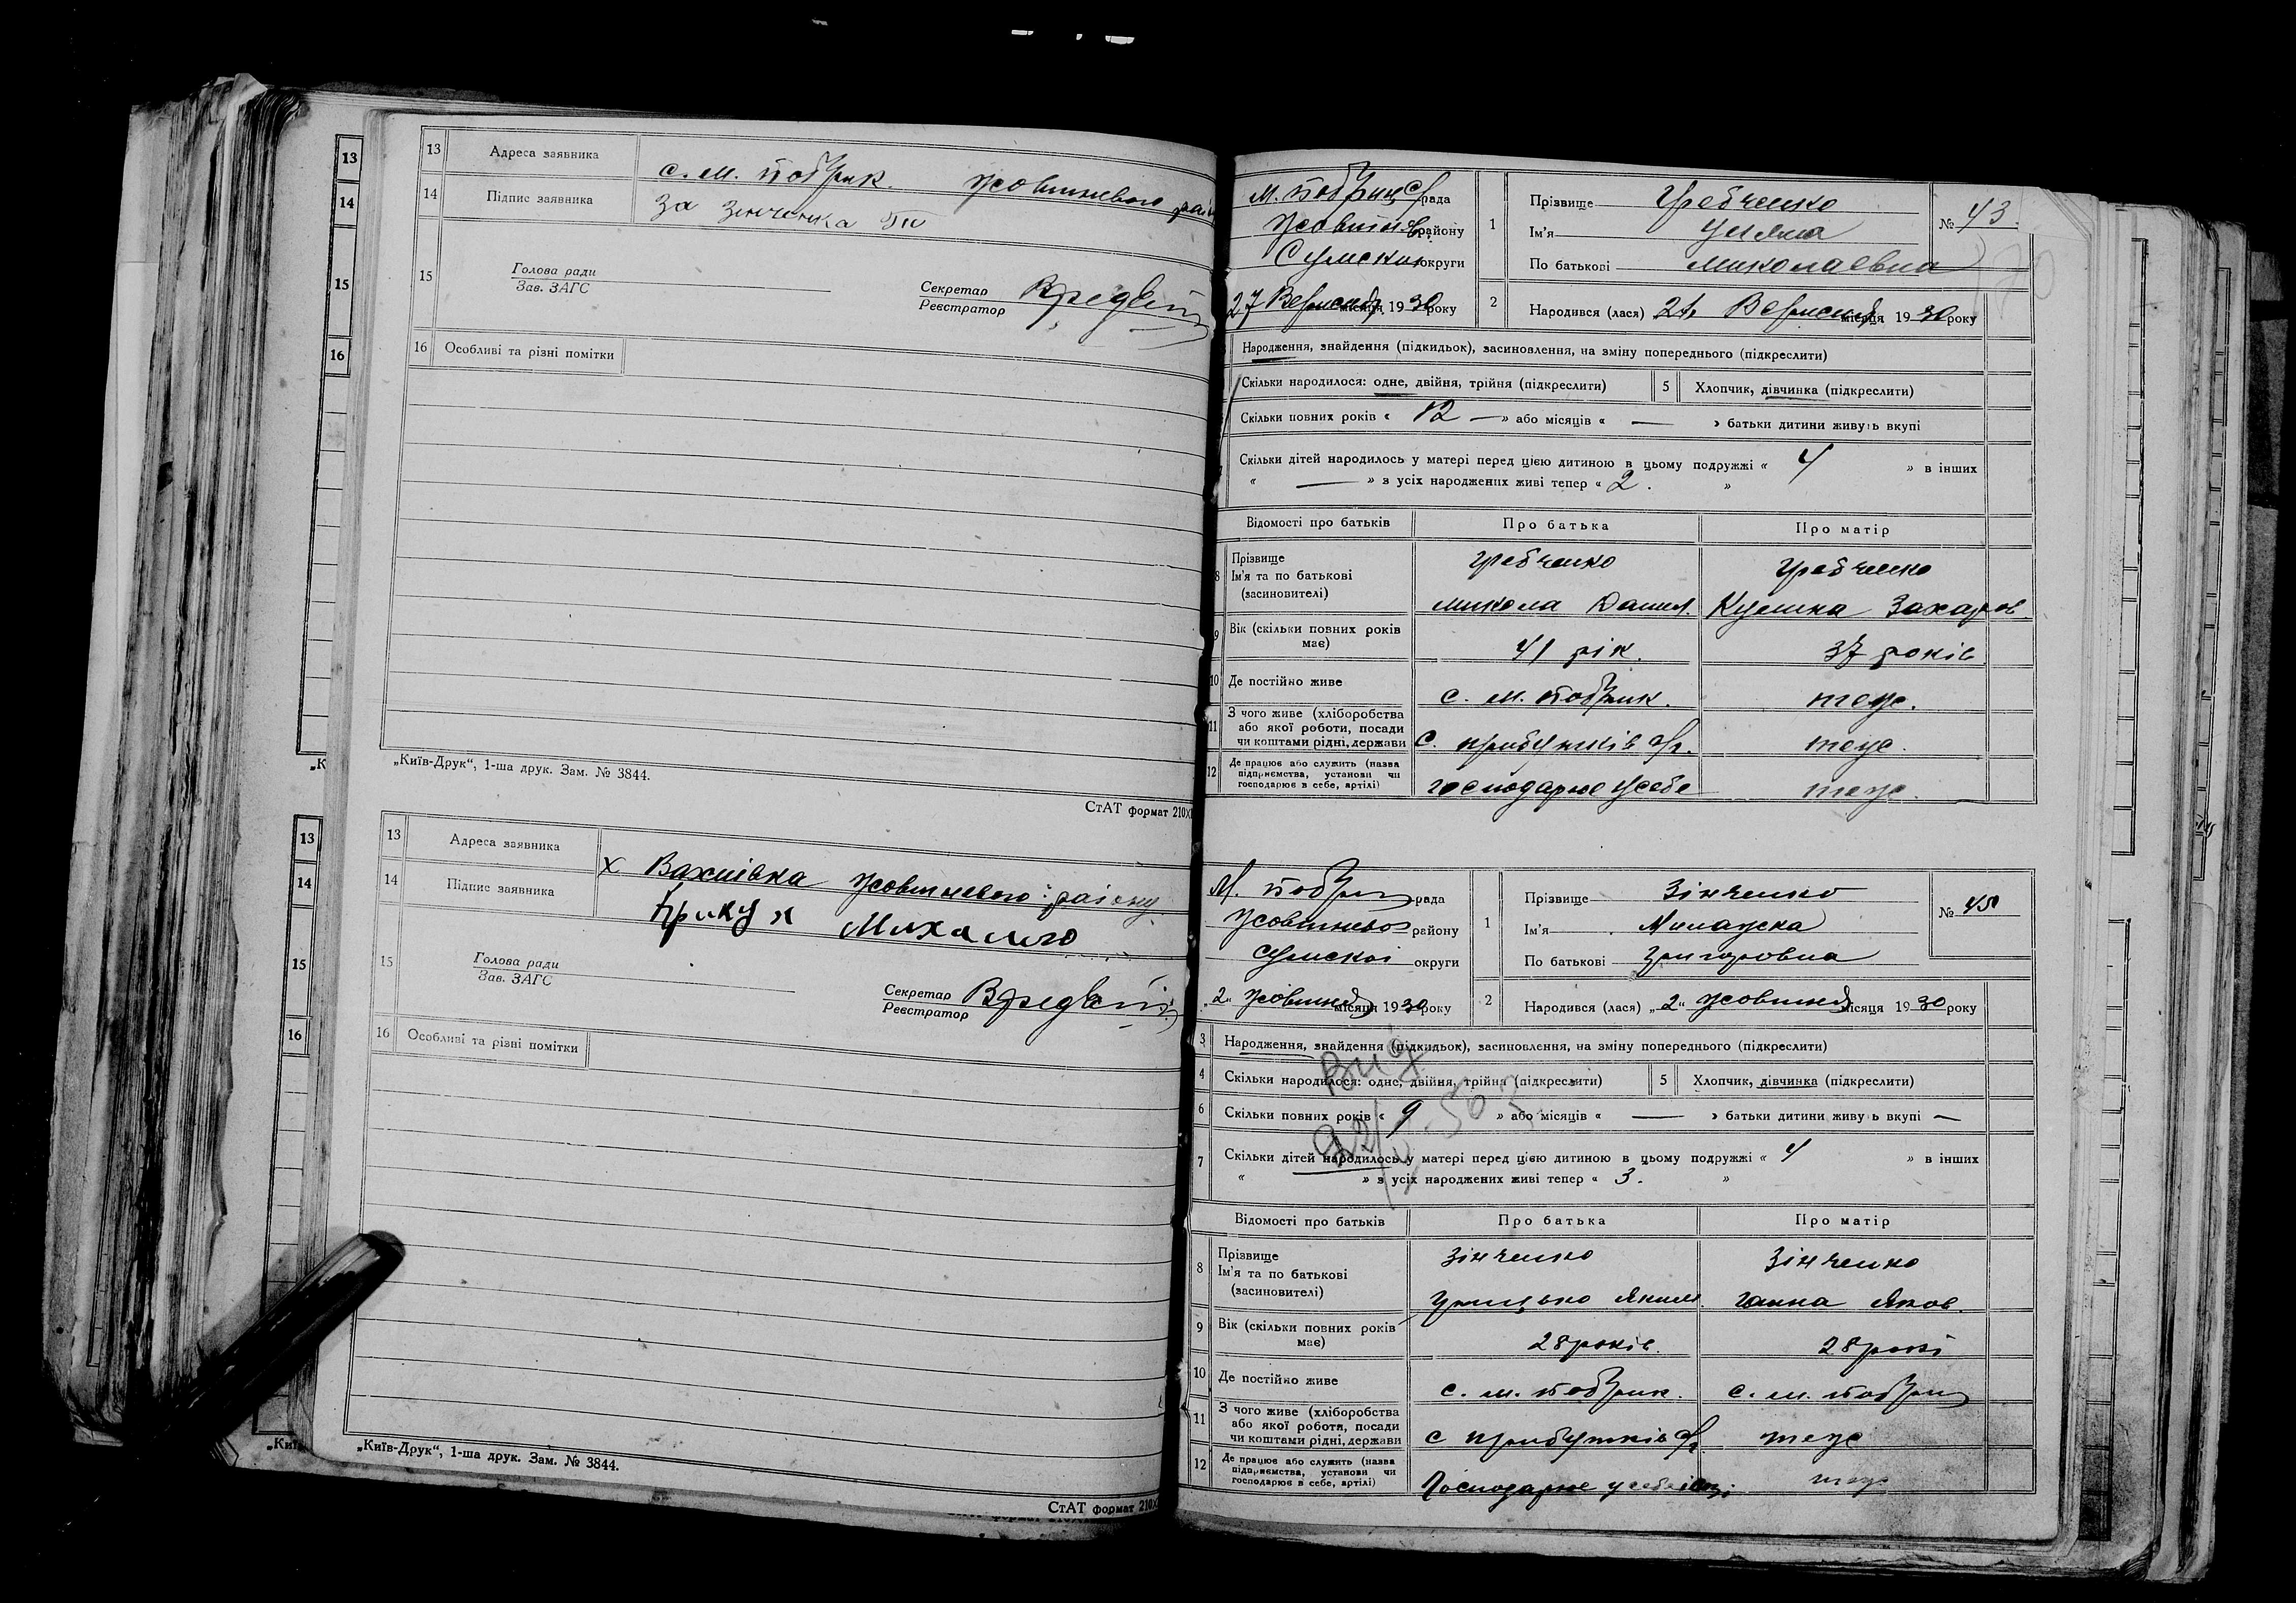 13
14
15
16
13 Адреса заявника с. М. Побрик. Жовтневого
14 Підпис заявника За Зінченка
15 Голова ради
Зав. ЗАГС
Секретар
Реєстратор
16 Особливі та різні помітки
„Київ-Друк“, 1-ша друк. Зам. № 3844.
СтАТ формат 210
13
14
15
16
13 Адреса заявника х Вахнівка Жовтневого району
14 Підпис заявника Михайло
15 Голова ради
Зав. ЗАГС
Секретар
Реєстратор
16 Особливі та різні помітки
„Київ-Друк“, 1-ша друк. Зам. № 3844.
СтАТ формат 210
рада
району
Сумской округи
27 Вересня місяця 1930 року
1 Прізвище Гребченко
Ім'я Уляна
По батькові Миколаевна
№ 43.
2 Народився (лася) Вересня місяця 1930 року
Народження, знайдення (підкидьок), засиновлення, на зміну попереднього (підкреслити)
Скільки народилося: одне, двійня, трійня (підкреслити) 5 Хлопчик, дівчинка (підкреслити)
Скільки повних років « 12 — » або місяців « — » батьки дитини живуть вкупі
Скільки дітей народилось у матері перед цією дитиною в цьому подружжі « 4 » в інших
« — » з усіх народжених живі тепер « 2. »
Відомості про батьків Про батька Про матір
8 Прізвище Гребченко Гребченко
Ім'я та по батькові
(засиновителі) Микола Данил. Захаров.
9 Вік (скільки повних років
має) 41 рік. 37 років
10 Де постійно живе с. М. Побрик. теж.
11 З чого живе (хліборобства
або якої роботи, посади
чи коштами рідні, держави С. прибутків теж.
12 Де працює або служить (назва
підприємства, установи чи
господарює в себе, артілі) господарює усебе теж.
рада
району
Сумскоі округи
„2„ Жовтня місяця 1930 року
1 Прізвище Зінченко
Ім'я
По батькові Григоровна
№
2 Народився (лася) „2„ Жовтня місяця 1930 року
3 Народження, знайдення (підкидьок), засиновлення, на зміну попереднього (підкреслити)
4 Скільки народилося: одне, двійня, трійня (підкреслити) 5 Хлопчик, дівчинка (підкреслити)
6 Скільки повних років « 9 » або місяців « — » батьки дитини живуть вкупі —
7 Скільки дітей народилось у матері перед цією дитиною в цьому подружжі « 4 » в інших
« » з усіх народжених живі тепер « 3. »
Відомості про батьків Про батька Про матір
8 Прізвище Зінченко Зінченко
Ім'я та по батькові
(засиновителі) Грицько Яким. Ганна Яков.
9 Вік (скільки повних років
має) 28 років. 28 рокі
10 Де постійно живе с. М. Побрик. с. М.
11 З чого живе (хліборобства
або якої роботи, посади
чи коштами рідні, держави с прибутків теж
12 Де працює або служить (назва
підприємства, установи чи
господарює в себе, артілі) Господарює теж